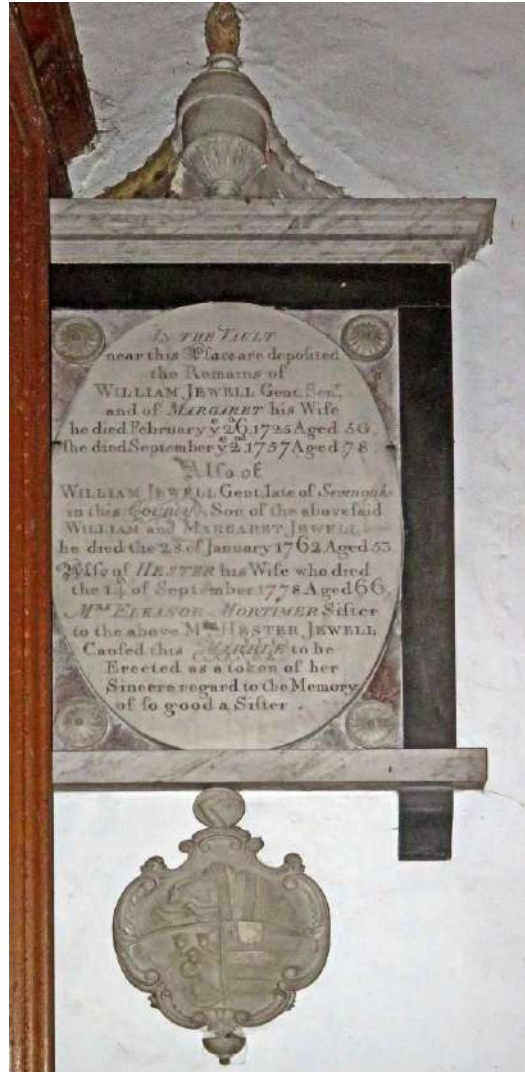 IN THE VAULT
near this Place are deposited
the Remains of
WILLIAM JEWELL Gent. Senr.
and of MARGARET his Wife
he died February ye 26, 1725 Aged 50.
ſhe died September ye 2nd 1757 Aged 78.
Alſo of
WILLIAM JEWELL Gent. late of Sevenoak
in this County, Son of the aboveſaid
WILLIAM and MARGARET JEWELL
he died the 28 of January 1762 Aged 53
Alſo of HESTER his Wife who died
the 14 of September 1778 Aged 66,
Mrs ELEANOR MORTIMER Siſter
to the above Mrs HESTER JEWELL
Cauſed this MARBLE to be
Erected as a token of her
Sincere regard to the Memory
of ſo good a Siſter.